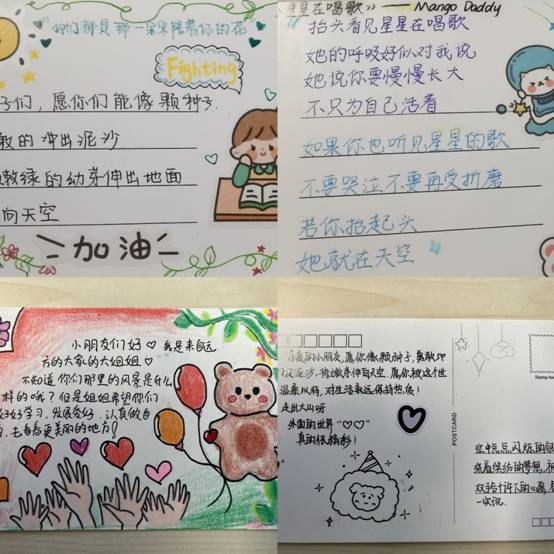 "我们都是那一朵朵陪着你的花"
Fighting
子们,愿你们能像颗种子
敢的冲出泥沙
嫩绿的幼芽伸出地面
向天空
加油
星星在唱歌》—— Mango Daddy
抬头看见星星在唱歌
她的呼吸好似对我说
她说你要慢慢长大
不只为自己活着
如果你也听见星星的歌
不要哭泣不要再受折磨
若你抬起头
她就在天空
小朋友们好♡ 我是来自远
方的大家的大姐姐♡
不知道你们那里的风景是什么
样的呢?但是姐姐希望你们
好好学习,发展爱好,认真做自
己,去看看更美丽的地方!
的小朋友,愿你像颗种子,勇敢地
沉沙,将嫩芽伸向天空。愿你被这个世
温柔以待,对生活永远保持热爱!
走出大山呀
外面的世界"♡♡"
真的很精彩!
POSTCARD
Stamp here
空中点点闪烁的